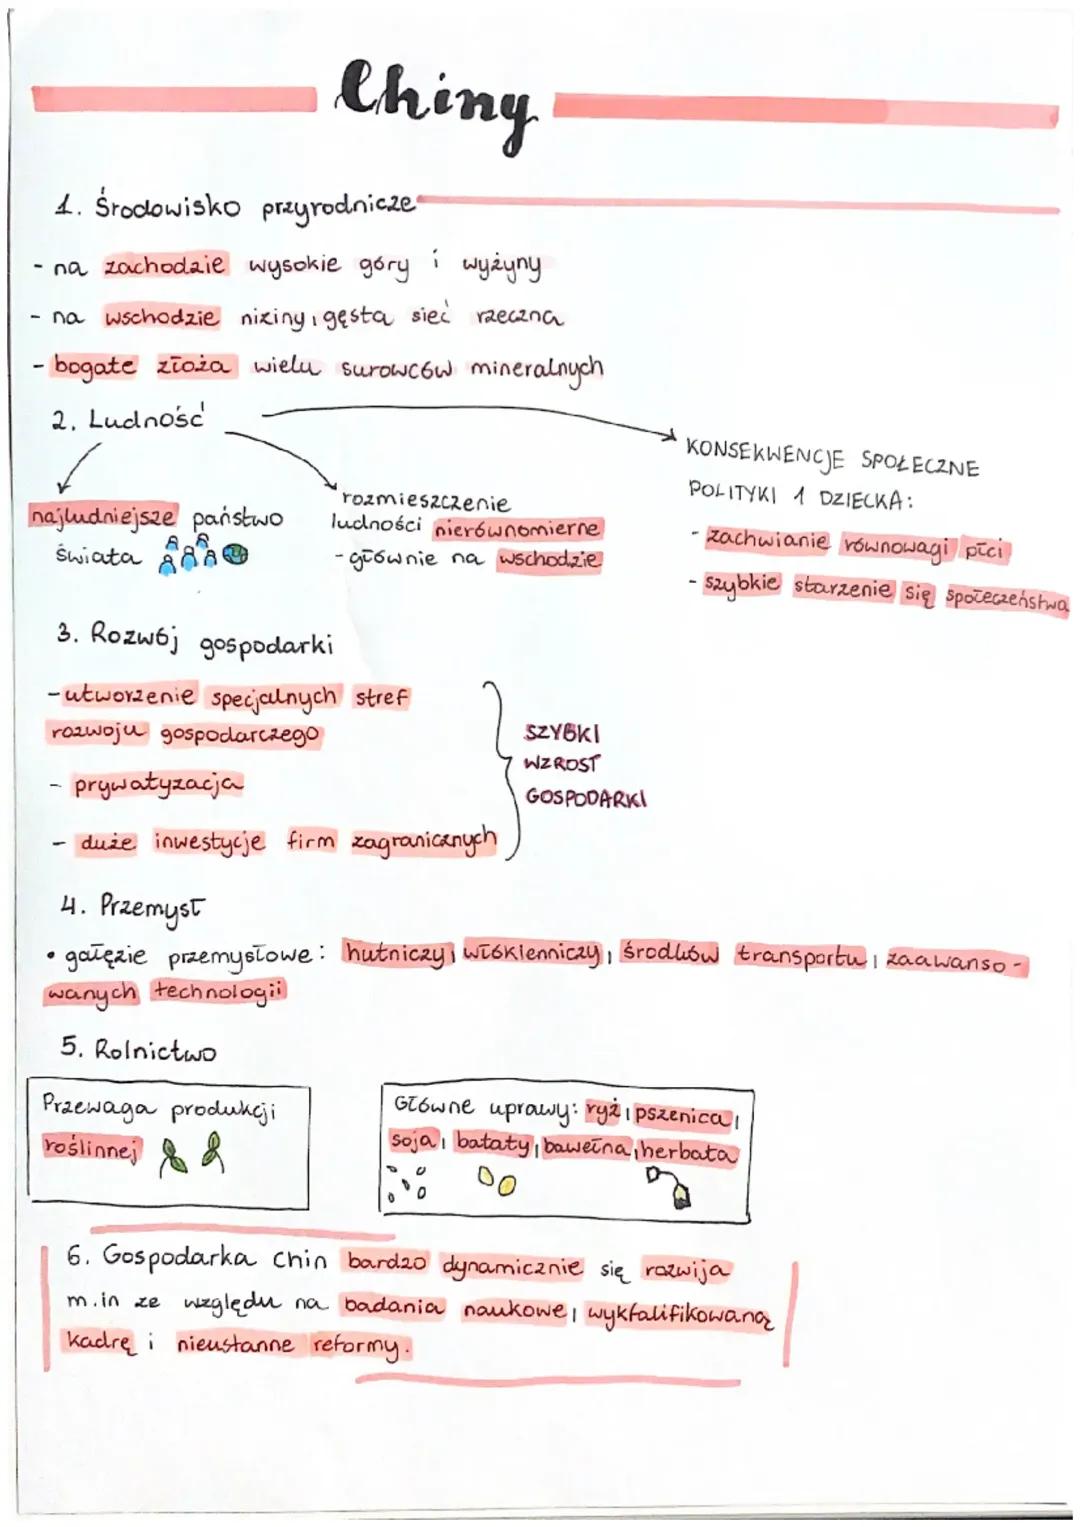 Chiny
1. Środowisko przyrodnicze
- na zachodzie wysokie góry i wyżyny
- na wschodzie niziny, gęsta sieć rzeczna
- bogate złoża wielu surowców mineralnych
2. Ludność
najludniejsze państwo
świata
rozmieszczenie
ludności nierównomierne
- głównie na wschodzie
KONSEKWENCJE SPOŁECZNE
POLITYKI 1 DZIECKA:
- zachwianie równowagi płci
- szybkie starzenie się społeczeństwa
3. Rozwój gospodarki
- utworzenie specjalnych stref
rozwoju gospodarczego
- prywatyzacja
- duże inwestycje firm zagranicznych
SZYBKI
WZROST
GOSPODARKI
4. Przemysł
• gałęzie przemysłowe: hutniczy, włókienniczy, środków transportu, zaawanso-
wanych technologii
5. Rolnictwo
Przewaga produkcji
roślinnej
Główne uprawy: ryż, pszenica,
soja, bataty, bawełna, herbata
6. Gospodarka Chin bardzo dynamicznie się rozwija
m.in ze względu na badania naukowe, wykfalifikowaną
kadrę i nieustanne reformy.